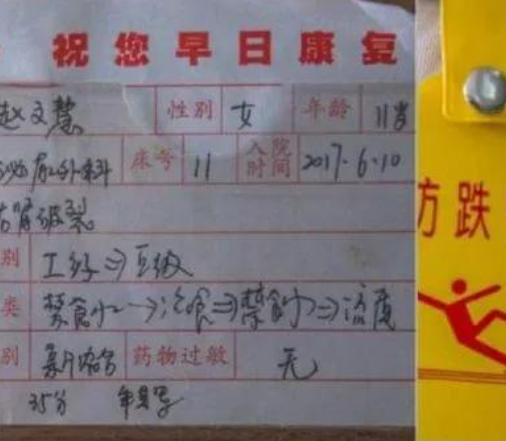 祝您早日康复
赵文慧 性别 女 年龄 11岁
泌尿外科 床号 11 入院时间 2017.6.10
右肾破裂
别 I级⇒II级
类 禁食水→流食⇒禁食水⇒流质
别 新农合 药物过敏 无
35分
防跌